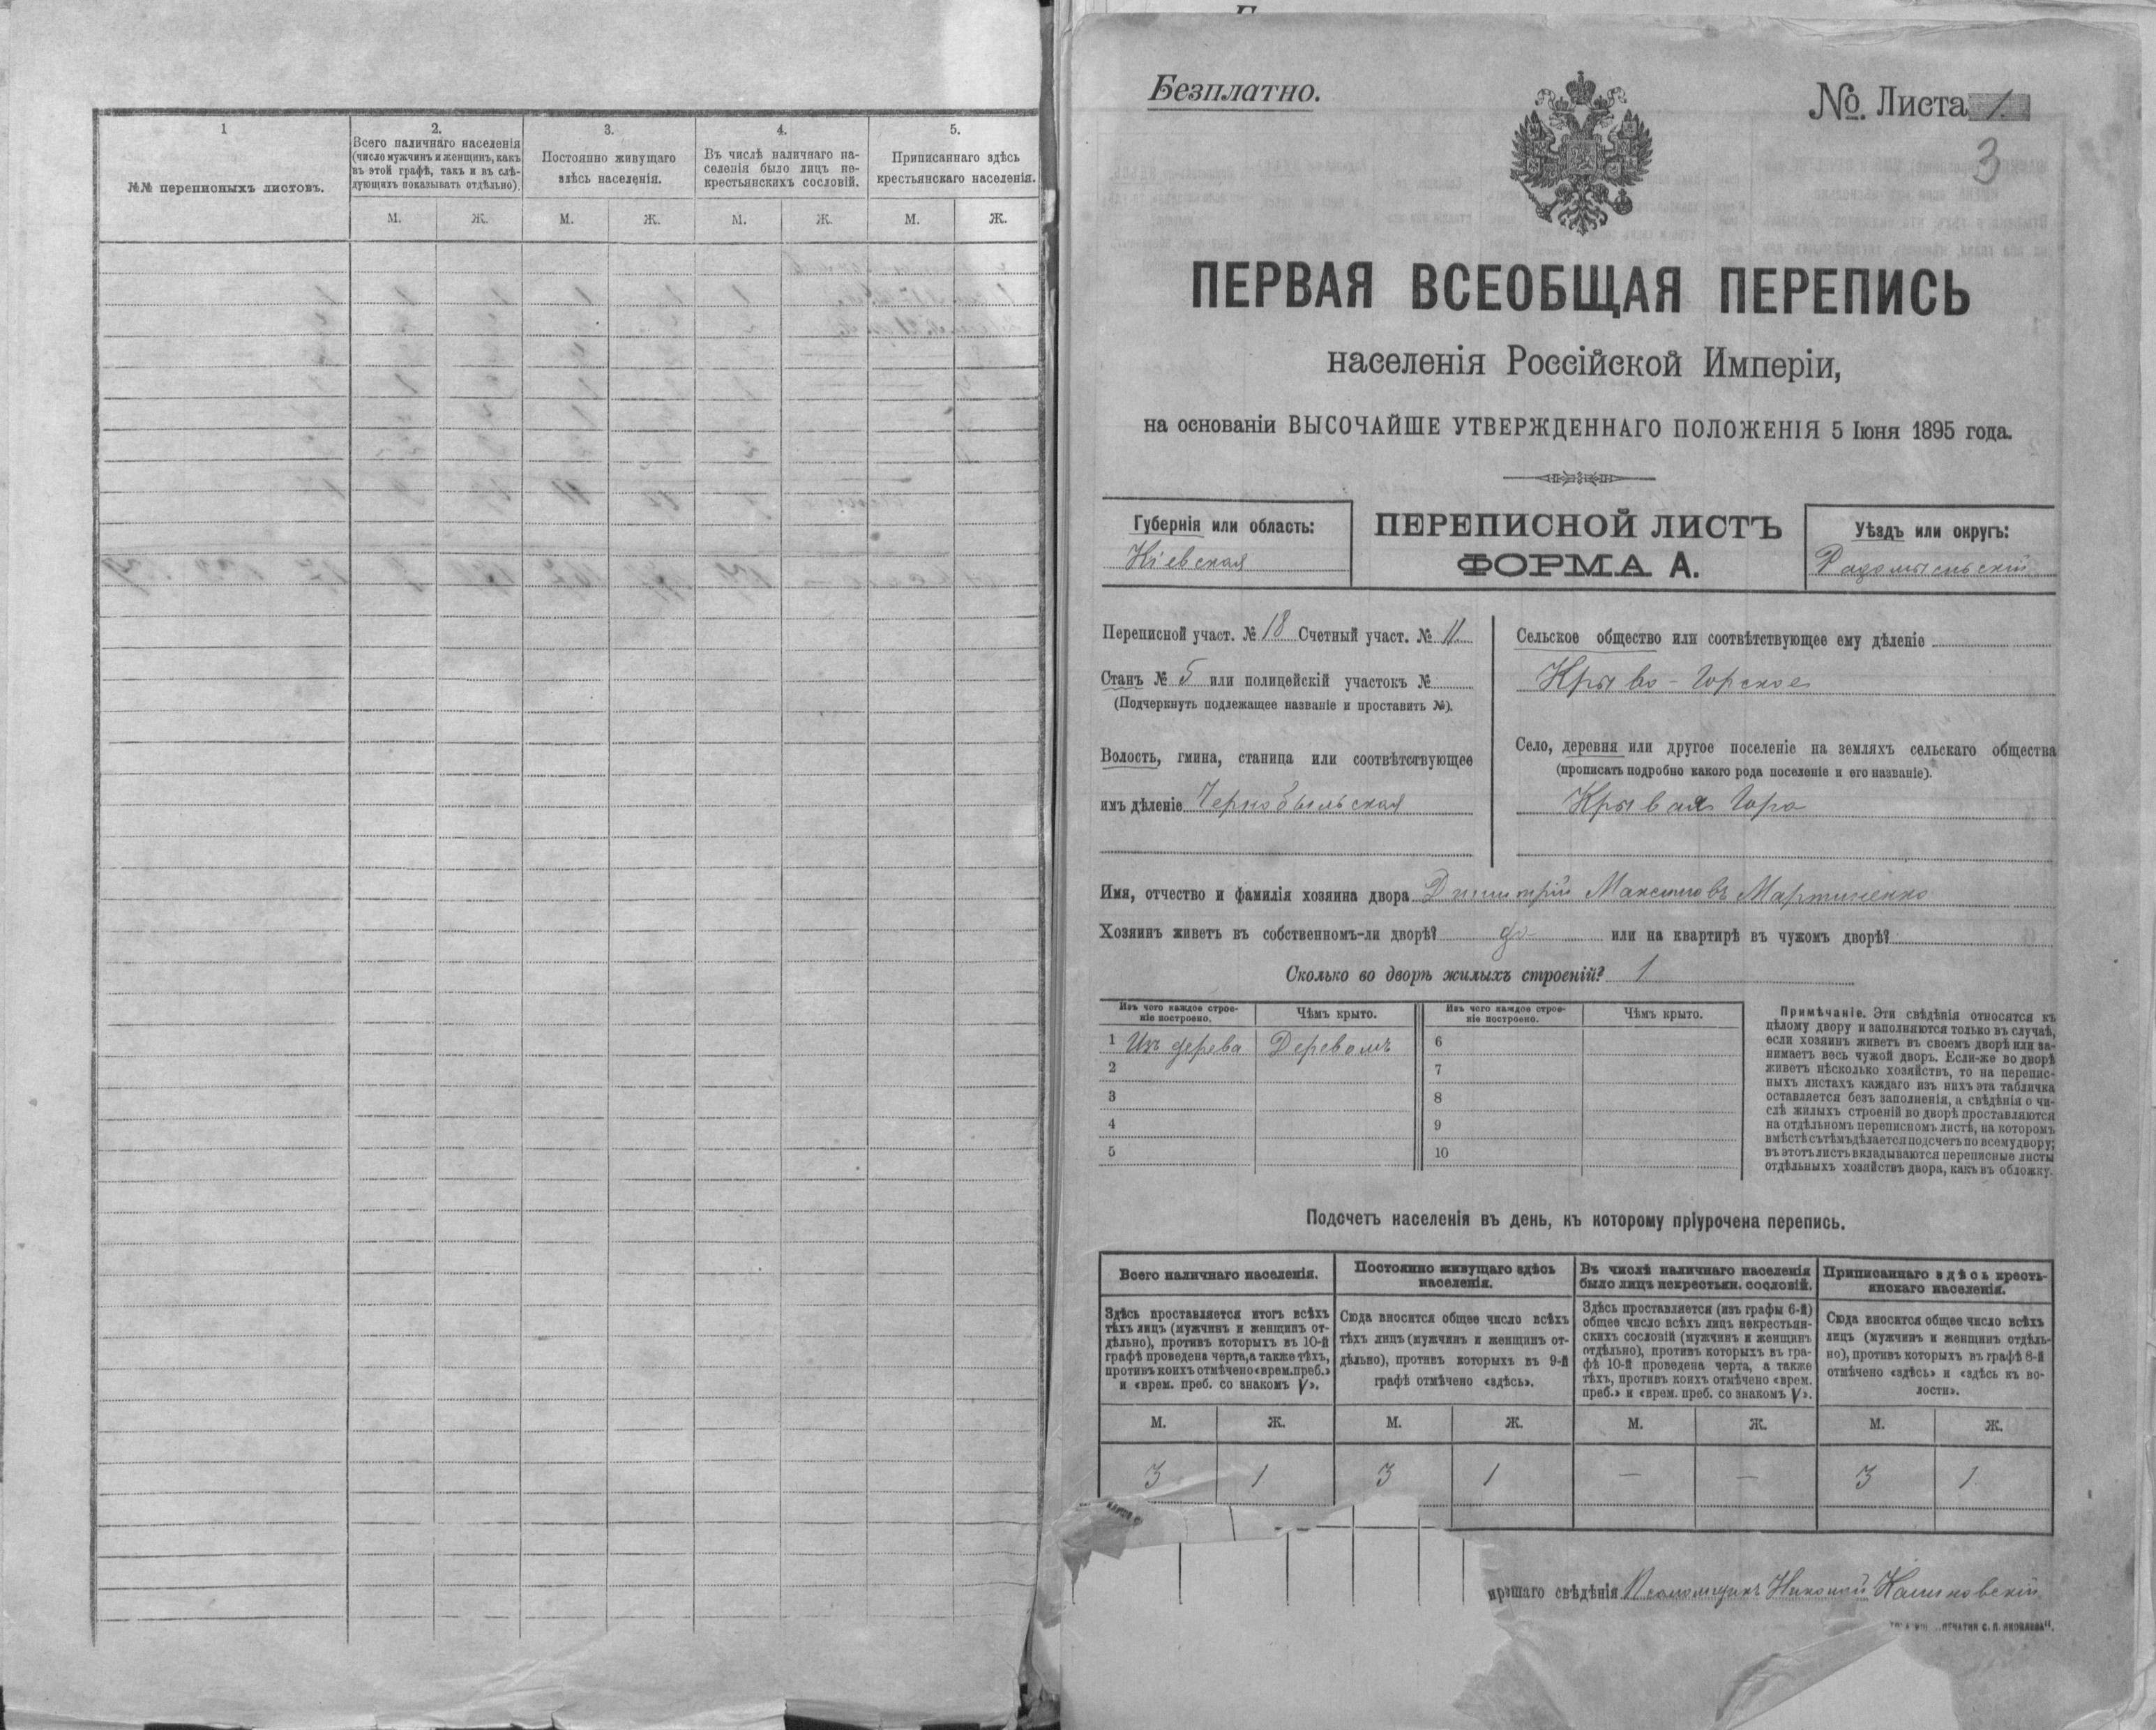 1
№№ переписныхъ листовъ.
2.
Всего наличнаго населенія
(число мужчинъ и женщинъ, какъ
въ этой графѣ, такъ и въ слѣ-
дующихъ показывать отдѣльно).
3.
Постоянно живущаго
здѣсь населенія.
4.
Въ числѣ наличнаго на-
селенія было лицъ не-
крестьянскихъ сословій.
5.
Приписаннаго здѣсь
крестьянскаго населенія.
М. Ж. М. Ж. М. Ж. М. Ж.
Безплатно.
№. Листа 1.
3
ПЕРВАЯ ВСЕОБЩАЯ ПЕРЕПИСЬ
населенія Россійской Имперіи,
на основаніи ВЫСОЧАЙШЕ УТВЕРЖДЕННАГО ПОЛОЖЕНІЯ 5 Іюня 1895 года.
Губернія или область:
Кіевская
ПЕРЕПИСНОЙ ЛИСТЪ
ФОРМА А.
Уѣздъ или округъ:
Радомысльскій
Переписной участ. № 18 Счетный участ. № 11.
Станъ № 5 или полицейскій участокъ №
(Подчеркнуть подлежащее названіе и проставить №).
Волость, гмина, станица или соотвѣтствующее
имъ дѣленіе Чернобыльская
Сельское общество или соотвѣтствующее ему дѣленіе
Крыво-Горское
Село, деревня или другое поселеніе на земляхъ сельскаго общества
(прописать подробно какого рода поселеніе и его названіе).
Крывая Гора
Имя, отчество и фамилія хозяина двора Дмитрій Максимовъ Мартиненко
Хозяинъ живетъ въ собственномъ-ли дворѣ? да или на квартирѣ въ чужомъ дворѣ?
Сколько во дворѣ жилыхъ строеній? 1
Изъ чего каждое строе-
ніе построено.
Чѣмъ крыто.
Изъ чего каждое строе-
ніе построено.
Чѣмъ крыто.
1 Изъ дерева Деревомъ 6
2 7
3 8
4 9
5 10
Примѣчаніе. Эти свѣдѣнія относятся къ
цѣлому двору и заполняются только въ случаѣ,
если хозяинъ живетъ въ своемъ дворѣ или за-
нимаетъ весь чужой дворъ. Если-же во дворѣ
живетъ нѣсколько хозяйствъ, то на перепис-
ныхъ листахъ каждаго изъ нихъ эта табличка
оставляется безъ заполненія, а свѣдѣнія о чи-
слѣ жилыхъ строеній во дворѣ проставляются
на отдѣльномъ переписномъ листѣ, на которомъ
вмѣстѣ съ тѣмъ дѣлается подсчетъ по всему двору;
въ этотъ листъ вкладываются переписные листы
отдѣльныхъ хозяйствъ двора, какъ въ обложку.
Подсчетъ населенія въ день, къ которому пріурочена перепись.
Всего наличнаго населенія.
Здѣсь проставляется итогъ всѣхъ
тѣхъ лицъ (мужчинъ и женщинъ от-
дѣльно), противъ которыхъ въ 10-й
графѣ проведена черта, а также тѣхъ,
противъ коихъ отмѣчено «врем. преб.»
и «врем. преб. со знакомъ V».
Постоянно живущаго здѣсь
населенія.
Сюда вносится общее число всѣхъ
тѣхъ лицъ (мужчинъ и женщинъ от-
дѣльно), противъ которыхъ въ 9-й
графѣ отмѣчено «здѣсь».
Въ числѣ наличнаго населенія
было лицъ некрестьян. сословій.
Здѣсь проставляется (изъ графы 6-й)
общее число всѣхъ лицъ некрестьян-
скихъ сословій (мужчинъ и женщинъ
отдѣльно), противъ которыхъ въ гра-
фѣ 10-й проведена черта, а также
тѣхъ, противъ коихъ отмѣчено «врем.
преб.» и «врем. преб. со знакомъ V».
Приписаннаго здѣсь кресть-
янскаго населенія.
Сюда вносится общее число всѣхъ
лицъ (мужчинъ и женщинъ отдѣль-
но), противъ которыхъ въ графѣ 8-й
отмѣчено «здѣсь» и «здѣсь къ во-
лости».
М. Ж. М. Ж. М. Ж. М. Ж.
3 1 3 1 — — 3 1
иравшаго свѣдѣнія Псаломщикъ Николай Калиновскій
ПЕЧАТНИ С. П. ЯКОВЛЕВА".